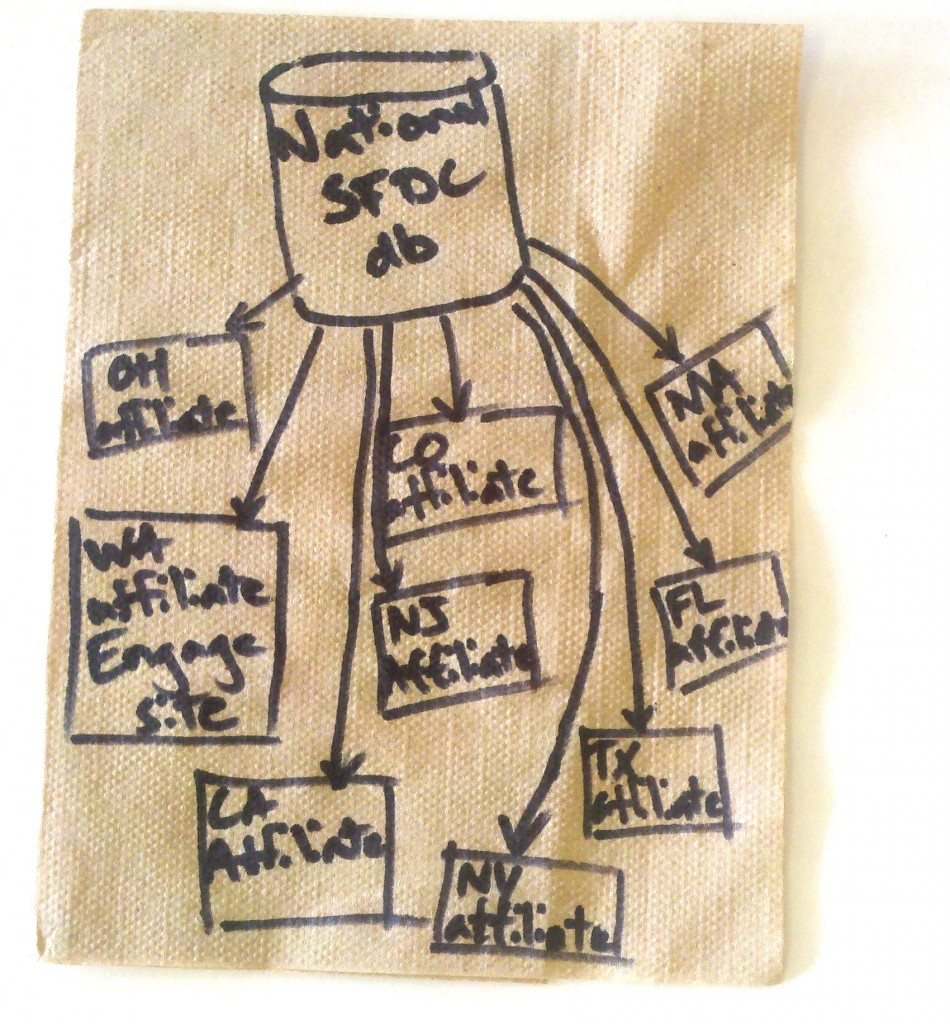 National
SFDC
db
OH
affiliate
MA
affiliate
CO
affiliate
WA
affiliate
Engage
site
NJ
Affiliate
FL
affiliate
TX
affiliate
CA
Affiliate
NV
affiliate